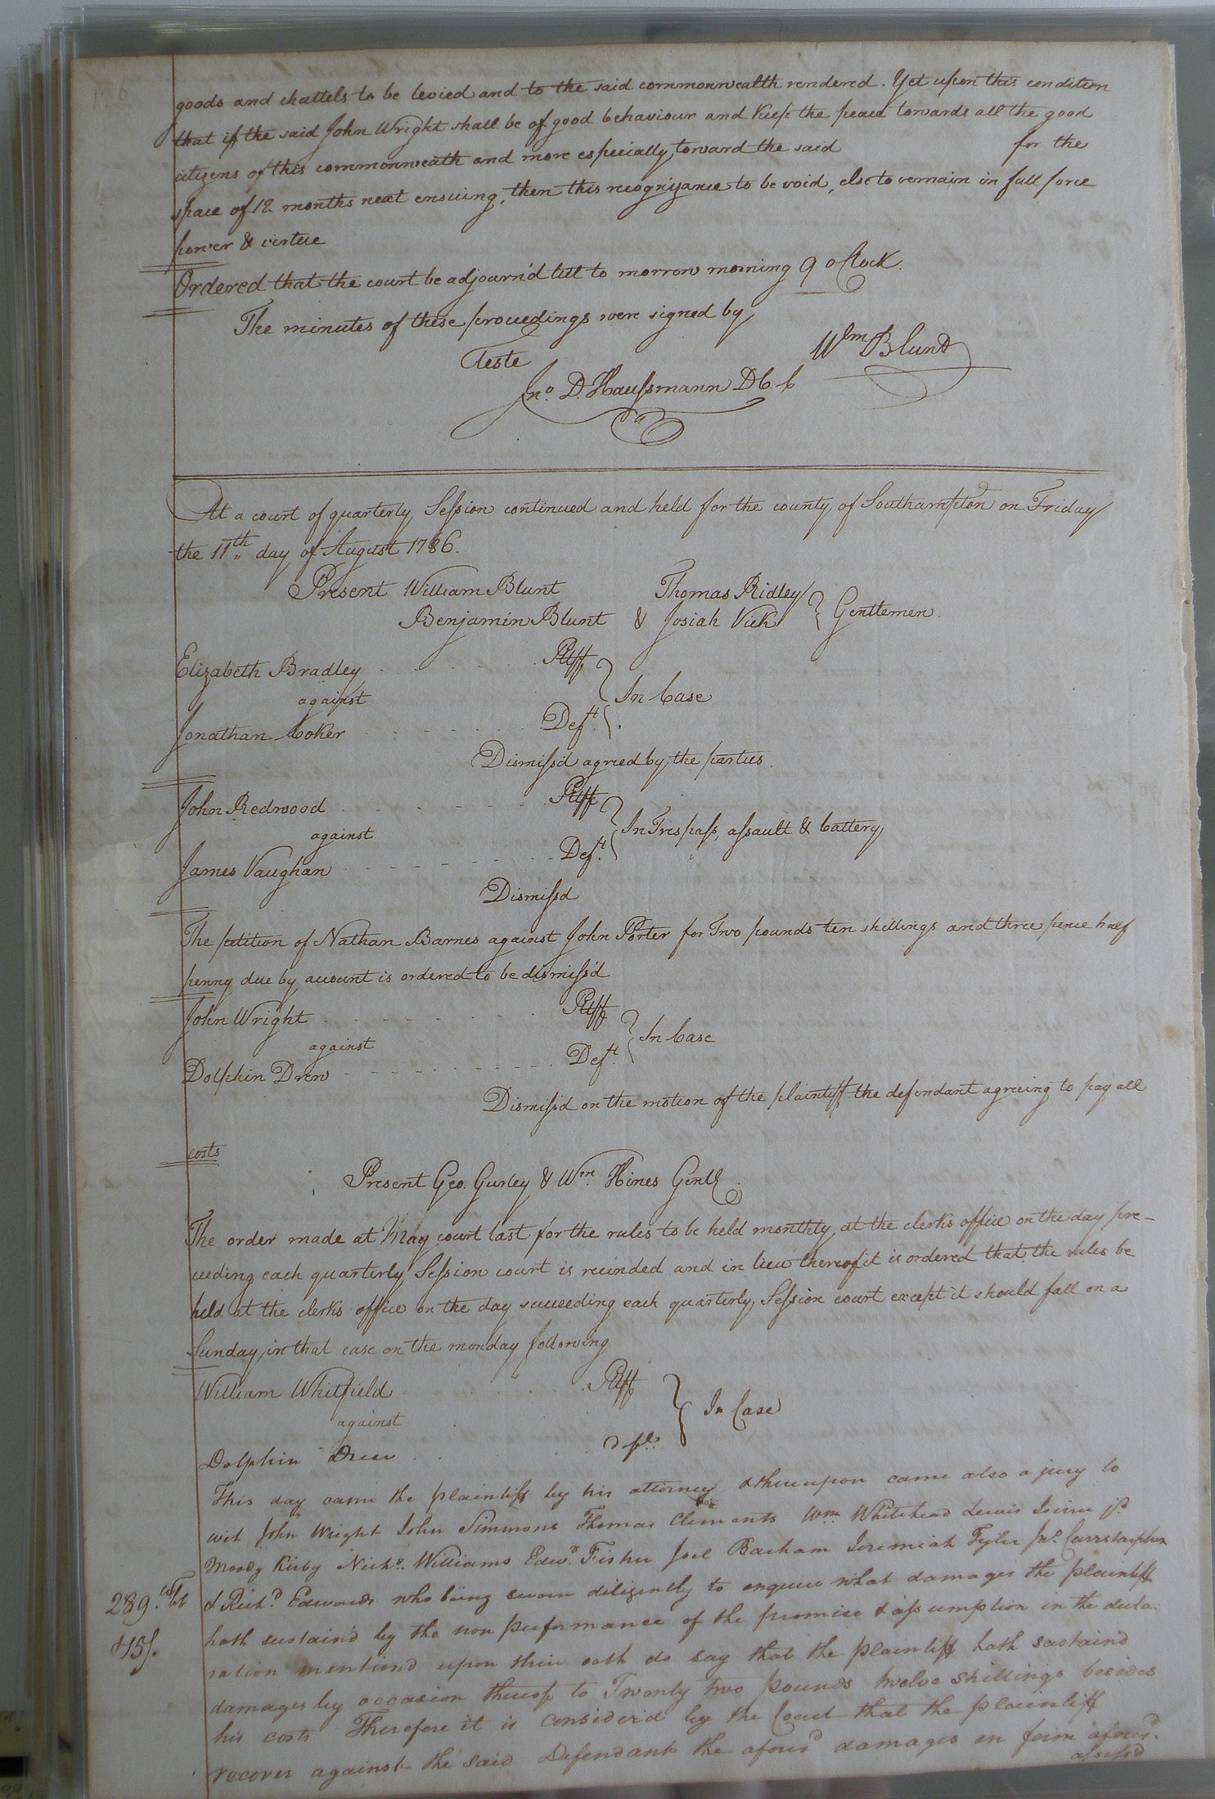 goods and chattels to be levied and to the said commonwealth rendered. Yet upon this condition
that if the said John Wright shall be of good behaviour and keep the peace towards all the good
citizens of this commonweath and more especially toward the said for the
space of 12 months next ensuing, then this recognizance to be void, else to remain in full force
power & virtue
Ordered that the court be adjourn'd till to morrow morning 9 o Clock.
The minutes of these proceedings were signed by
Teste
Wm Blunt
Jno. D. Haussmann D C. C
At a court of quarterly Session continued and held for the county of Southampton on Friday
the 11th day of August 1786.
Present William Blunt Thomas Ridley
Benjamin Blunt & Josiah Vick } Gentlemen.
Elizabeth Bradley Pltff
against } In Case
Jonathan Coker Deft.
Dismiss'd agreed by the parties.
John Redwood Pltff
against } In Trespass, assault & battery
James Vaughan Deft.
Dismiss'd
The petition of Nathan Barnes against John Porter for Two pounds ten shillings and three pence half
penny due by account is ordered to be dismiss'd
John Wright Pltff
against } In Case
Dolphin Drew Deft.
Dismiss'd on the motion of the plaintiff the defendant agreeing to pay all
costs
Present Geo. Gurley & Wm. Hines Gentl.
The order made at May court last for the rules to be held monthly at the clerks office on the day pre-
ceeding each quarterly Session court is recinded and in lieu thereof it is ordered that the rules be
held at the clerks office on the day succeeding each quarterly Session court except it should fall on a
Sunday in that case on the monday following
William Whitfield Pltff
against } In Case
Dolphin Drew Deft.
This day came the plaintiff by his attorney & thereupon came also a jury to
wit John Wright John Simmons Thomas Clements Wm Whitehead Lewis
Moody Kirby Nichs. Williams Edwd. Fisher Joel Barham Jeremiah Tyler Jno. Carrstarphen
289. Tob & Richd. Edwards who being sworn diligently to enquire what damages the plaintiff
& 15/. hath sustain'd by the non performance of the promise & assumption in the decla-
ration mention'd upon their oath do say that the plaintiff hath sustaind
damages by occasion thereof to Twenty two pounds twelve shillings besides
his costs Therefore it is consider'd by the Court that the plaintiff
recover against the said Defendant the aforesd. damages in form aforesd.
assessed